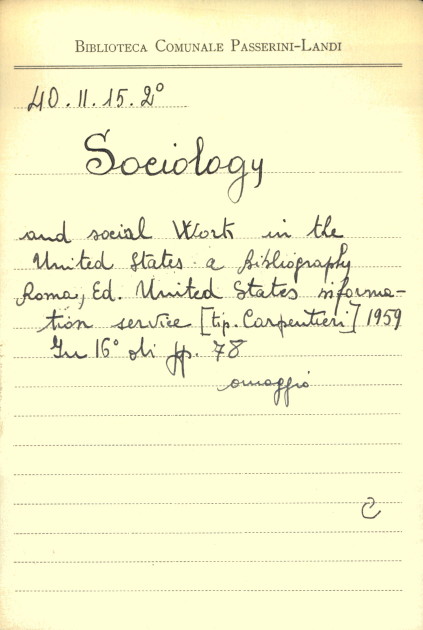 BIBLIOTECA COMUNALE PASSERINI-LANDI
40.II.15.2°
Sociology
and social Work in the
United States: a bibliography
Roma, Ed. United States informa-
tion service [tip. Carpentieri] 1959
In 16° di pp. 78
omaggio
C